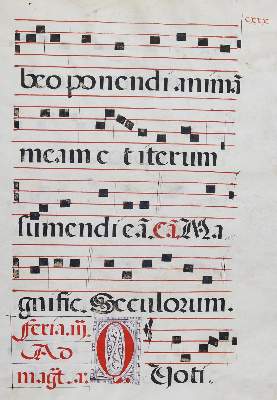 cxix
beo ponendi animā
meam et iterum
sumendi eā. cā. Ma
gnific. Seculorum.
feria. iij.
Ad
mag̅t. a. O Yoti